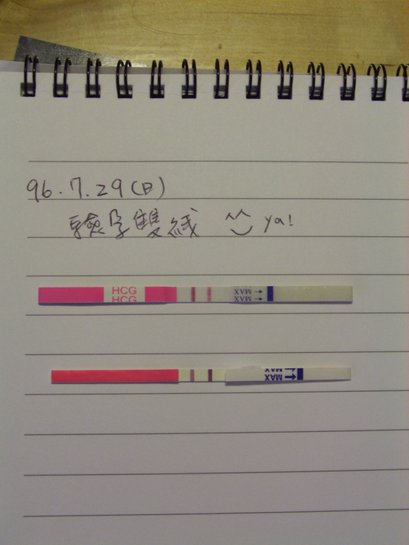 96.7.29(日)
驗孕雙線 ^^ ya!
HCG
HCG
MAX
MAX
MAX